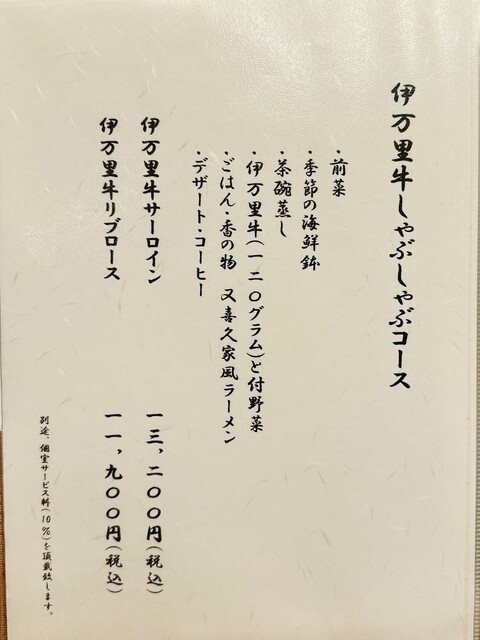 伊万里牛しゃぶしゃぶコース
・前菜
・季節の海鮮鉢
・茶碗蒸し
・伊万里牛(一二〇グラム)と付野菜
・ごはん・香の物　又喜久家風ラーメン
・デザート・コーヒー
伊万里牛サーロイン　一三,二〇〇円(税込)
伊万里牛リブロース　一一,九〇〇円(税込)
別途、個室サービス料(10%)を頂戴致します。